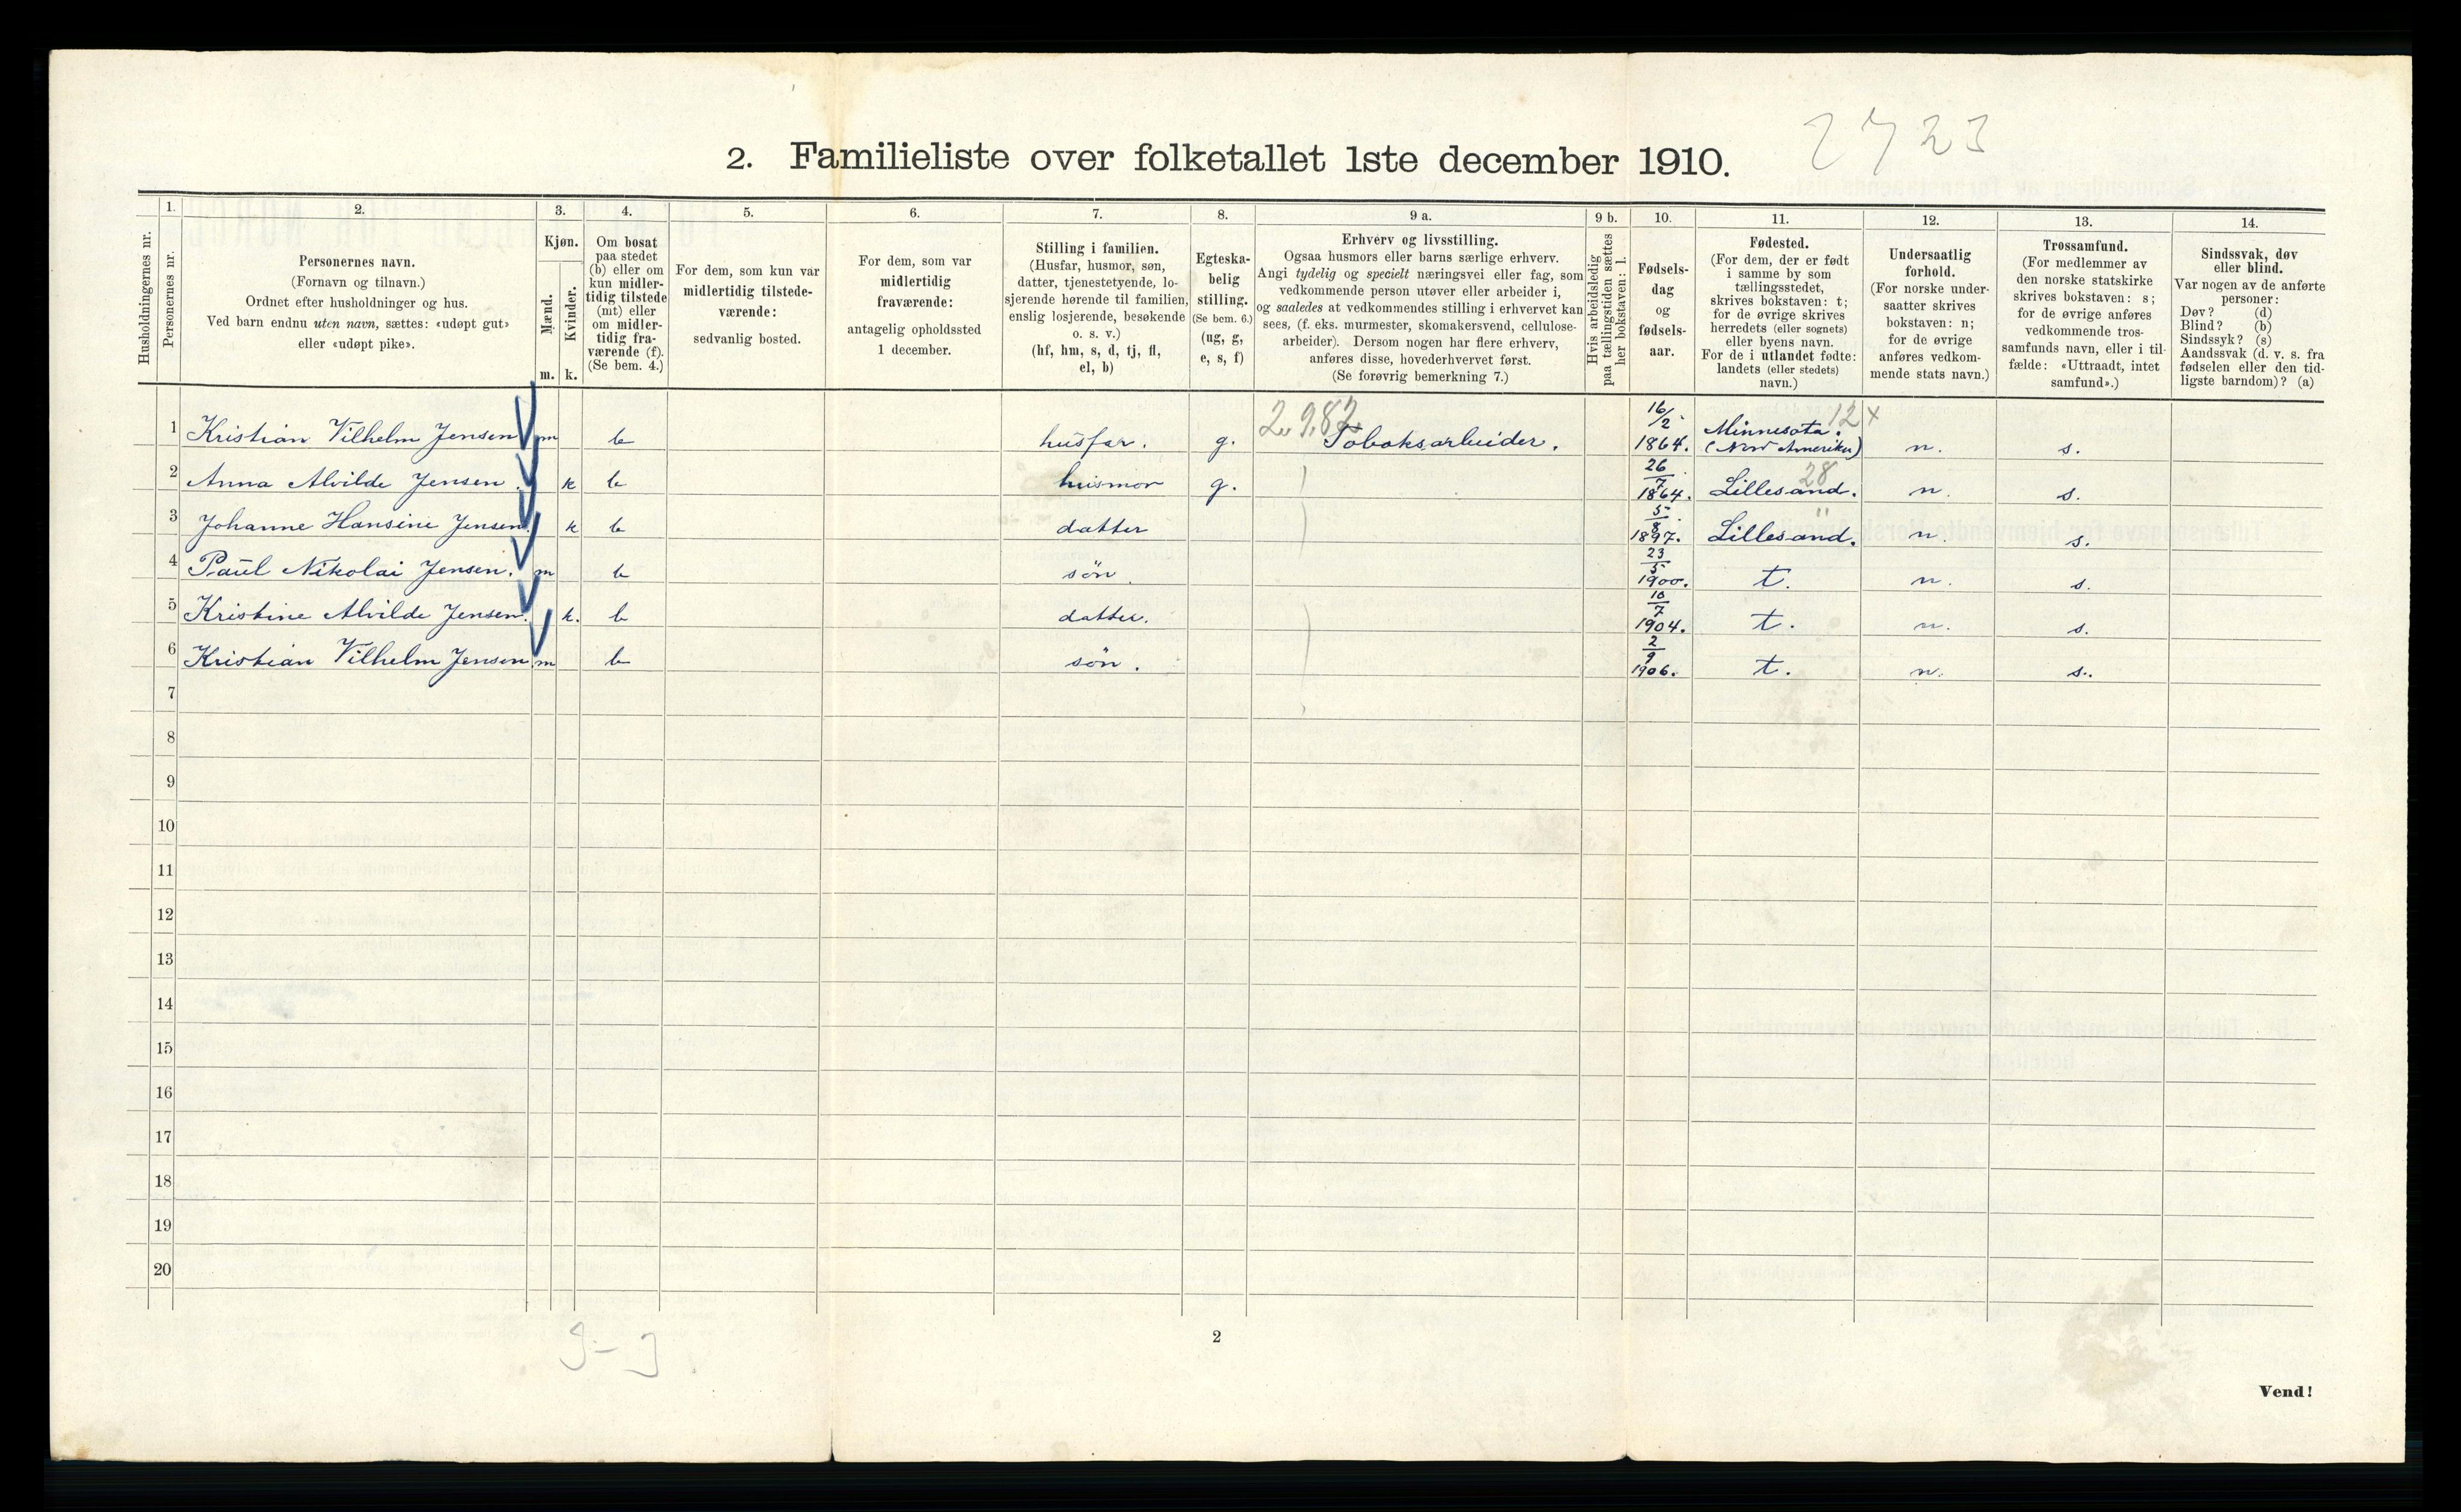 2723
2. Familieliste over folketallet 1ste december 1910.
Husholdningernes nr.
1.
Personernes nr.
2.
Personernes navn.
(Fornavn og tilnavn.)
Ordnet efter husholdninger og hus.
Ved barn endnu uten navn, sættes: «udøpt gut»
eller «udøpt pike».
3.
Kjøn.
Mænd.
Kvinder.
m. k.
4.
Om bosat
paa stedet
(b) eller om
kun midler-
tidig tilstede
(mt) eller
om midler-
tidig fra-
værende (f).
(Se bem. 4.)
5.
For dem, som kun var
midlertidig tilstede-
værende:
sedvanlig bosted.
6.
For dem, som var
midlertidig
fraværende:
antagelig opholdssted
1 december.
7.
Stilling i familien.
(Husfar, husmor, søn,
datter, tjenestetyende, lo-
sjerende hørende til familien,
enslig losjerende, besøkende
o. s. v.)
(hf, hm, s, d, tj, fl,
el, b)
8.
Egteska-
belig
stilling.
(Se bem. 6.)
(ug, g,
e, s, f)
9 a.
Erhverv og livsstilling.
Ogsaa husmors eller barns særlige erhverv.
Angi tydelig og specielt næringsvei eller fag, som
vedkommende person utøver eller arbeider i,
og saaledes at vedkommendes stilling i erhvervet kan
sees, (f. eks. murmester, skomakersvend, cellulose-
arbeider). Dersom nogen har flere erhverv,
anføres disse, hovederhvervet først.
(Se forøvrig bemerkning 7.)
9 b.
Hvis arbeidsledig
paa tællingstiden sættes
her bokstaven: l.
10.
Fødsels-
dag
og
fødsels-
aar.
11.
Fødested.
(For dem, der er født
i samme by som
tællingsstedet,
skrives bokstaven: t;
for de øvrige skrives
herredets (eller sognets)
eller byens navn.
For de i utlandet fødte:
landets (eller stedets)
navn.)
12.
Undersaatlig
forhold.
(For norske under-
saatter skrives
bokstaven: n;
for de øvrige
anføres vedkom-
mende stats navn.)
13.
Trossamfund.
(For medlemmer av
den norske statskirke
skrives bokstaven: s;
for de øvrige anføres
vedkommende tros-
samfunds navn, eller i til-
fælde: «Uttraadt, intet
samfund».)
14.
Sindssvak, døv
eller blind.
Var nogen av de anførte
personer:
Døv? (d)
Blind? (b)
Sindssyk? (s)
Aandssvak (d. v. s. fra
fødselen eller den tid-
ligste barndom)? (a)
1 Kristian Vilhelm Jensen m b husfar. g. 2.982 Tobaksarbeider. 16/2 1864. Minnesota. (Nord Amerika) 12x n. s.
2 Anna Alvilde Jensen. k b husmor g. 26/7 1864. Lillesand. 28 n. s.
3 Johanne Hansine Jensen. k b datter 5/8 1897. Lillesand. " n. s.
4 Paul Nikolai Jensen. m b søn. 23/5 1900. t. n. s.
5 Kristine Alvilde Jensen. k. b datter. 10/7 1904. t. n. s.
6 Kristian Vilhelm Jensen m b søn. 2/9 1906. t. n. s.
7
8
9
10
11
12
13
14
15
16
17
18
19
20
3-3
2
Vend!